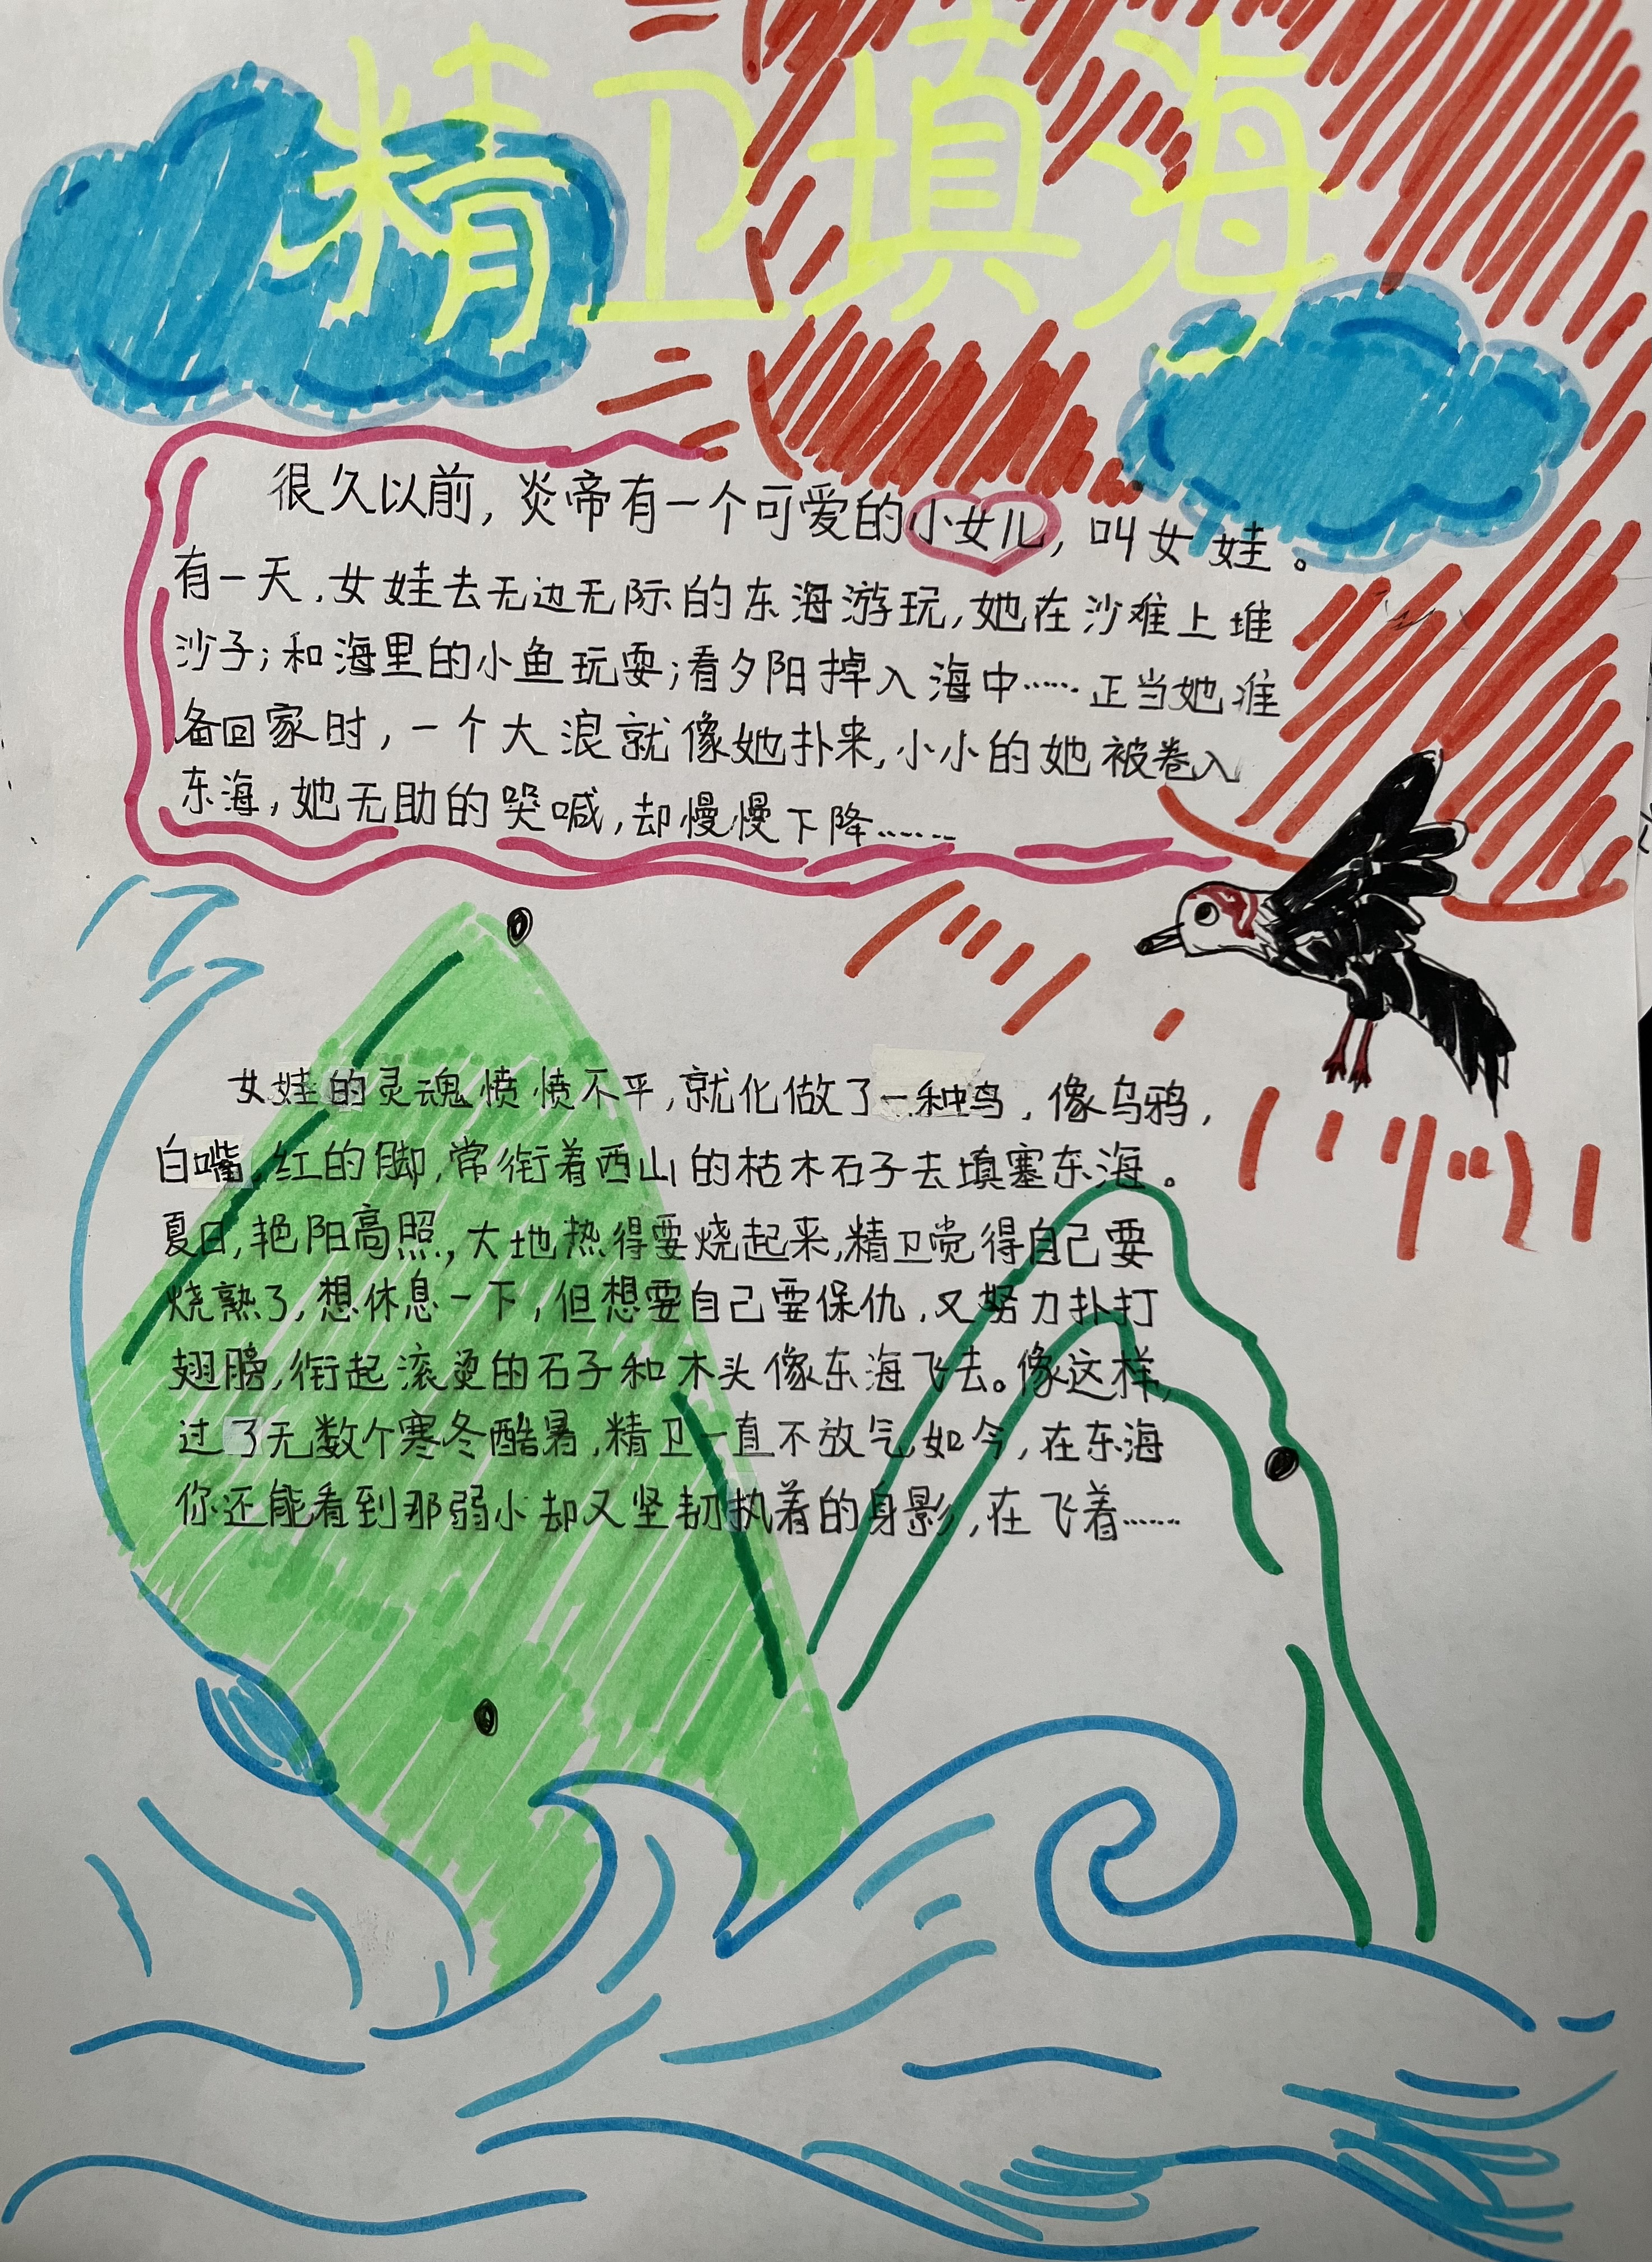 精卫填海
很久以前，炎帝有一个可爱的小女儿，叫女娃。
有一天，女娃去无边无际的东海游玩，她在沙难上堆
沙子；和海里的小鱼玩耍；看夕阳掉入海中……正当她准
备回家时，一个大浪就像她扑来，小小的她被卷入
东海，她无助的哭喊，却慢慢下降……
女娃的灵魂愤愤不平，就化做了一种鸟，像乌鸦，
白嘴，红的脚，常衔着西山的枯木石子去填塞东海。
夏日，艳阳高照，大地热得要烧起来，精卫觉得自己要
烧熟了，想休息一下，但想要自己要保仇，又努力扑打
翅膀，衔起滚烫的石子和木头像东海飞去。像这样，
过了无数个寒冬酷暑，精卫一直不放气，如今，在东海
你还能看到那弱小却又坚韧执着的身影，在飞着……